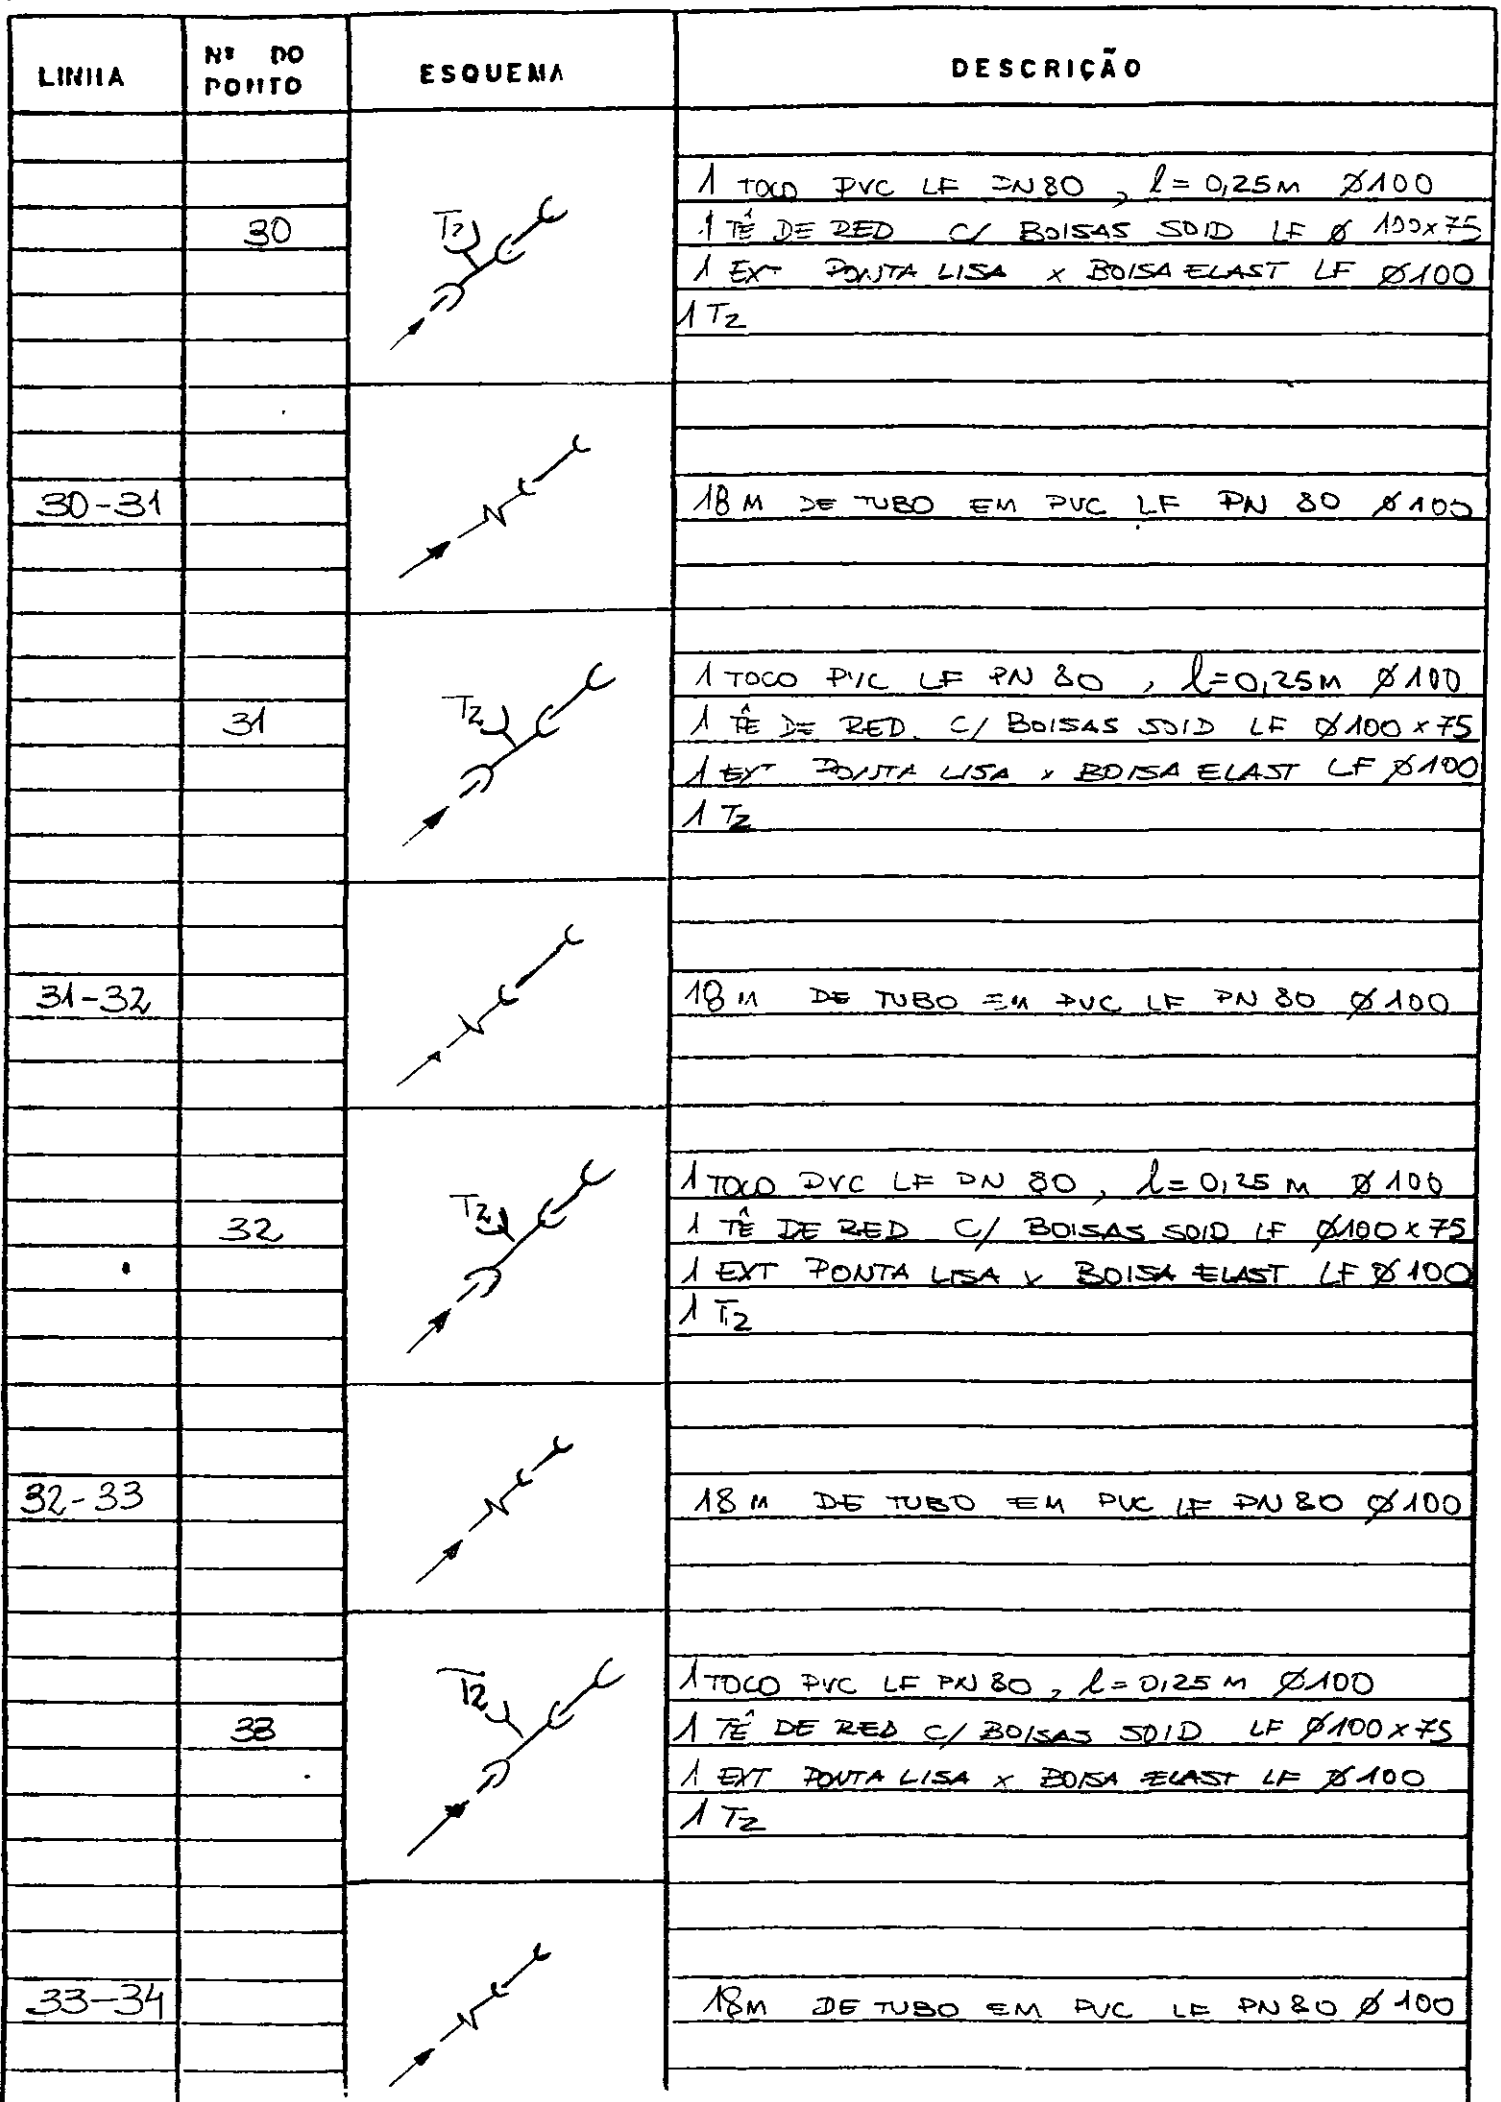 LINHA
Nº DO PONTO
ESQUEMA
DESCRIÇÃO
1 TOCO PVC LF PN 80, l = 0,25M Ø100
30
T2
1 TÊ DE RED C/ BOLSAS SOLD LF Ø 100x75
1 EXT PONTA LISA x BOLSA ELAST LF Ø100
1 T2
30-31
18 M DE TUBO EM PVC LF PN 80 Ø100
1 TOCO PVC LF PN 80, l=0,25M Ø100
31
T2
1 TÊ DE RED. C/ BOLSAS SOLD LF Ø100 x 75
1 EXT PONTA LISA x BOLSA ELAST LF Ø100
1 T2
31-32
18 M DE TUBO EM PVC LF PN 80 Ø100
1 TOCO PVC LF PN 80, l= 0,25 M Ø100
32
T2
1 TÊ DE RED C/ BOLSAS SOLD LF Ø100 x 75
1 EXT PONTA LISA x BOLSA ELAST LF Ø100
1 T2
32-33
18 M DE TUBO EM PVC LF PN 80 Ø100
1 TOCO PVC LF PN 80, l= 0,25 M Ø100
33
T2
1 TÊ DE RED C/ BOLSAS SOLD LF Ø100 x 75
1 EXT PONTA LISA x BOLSA ELAST LF Ø100
1 T2
33-34
18M DE TUBO EM PVC LF PN 80 Ø 100